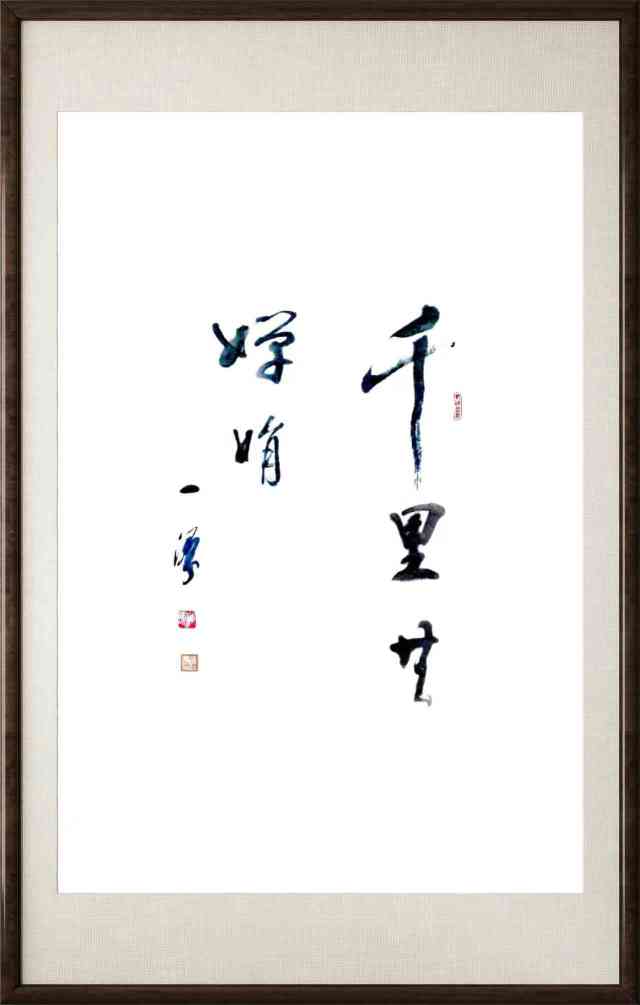 千里共
婵娟